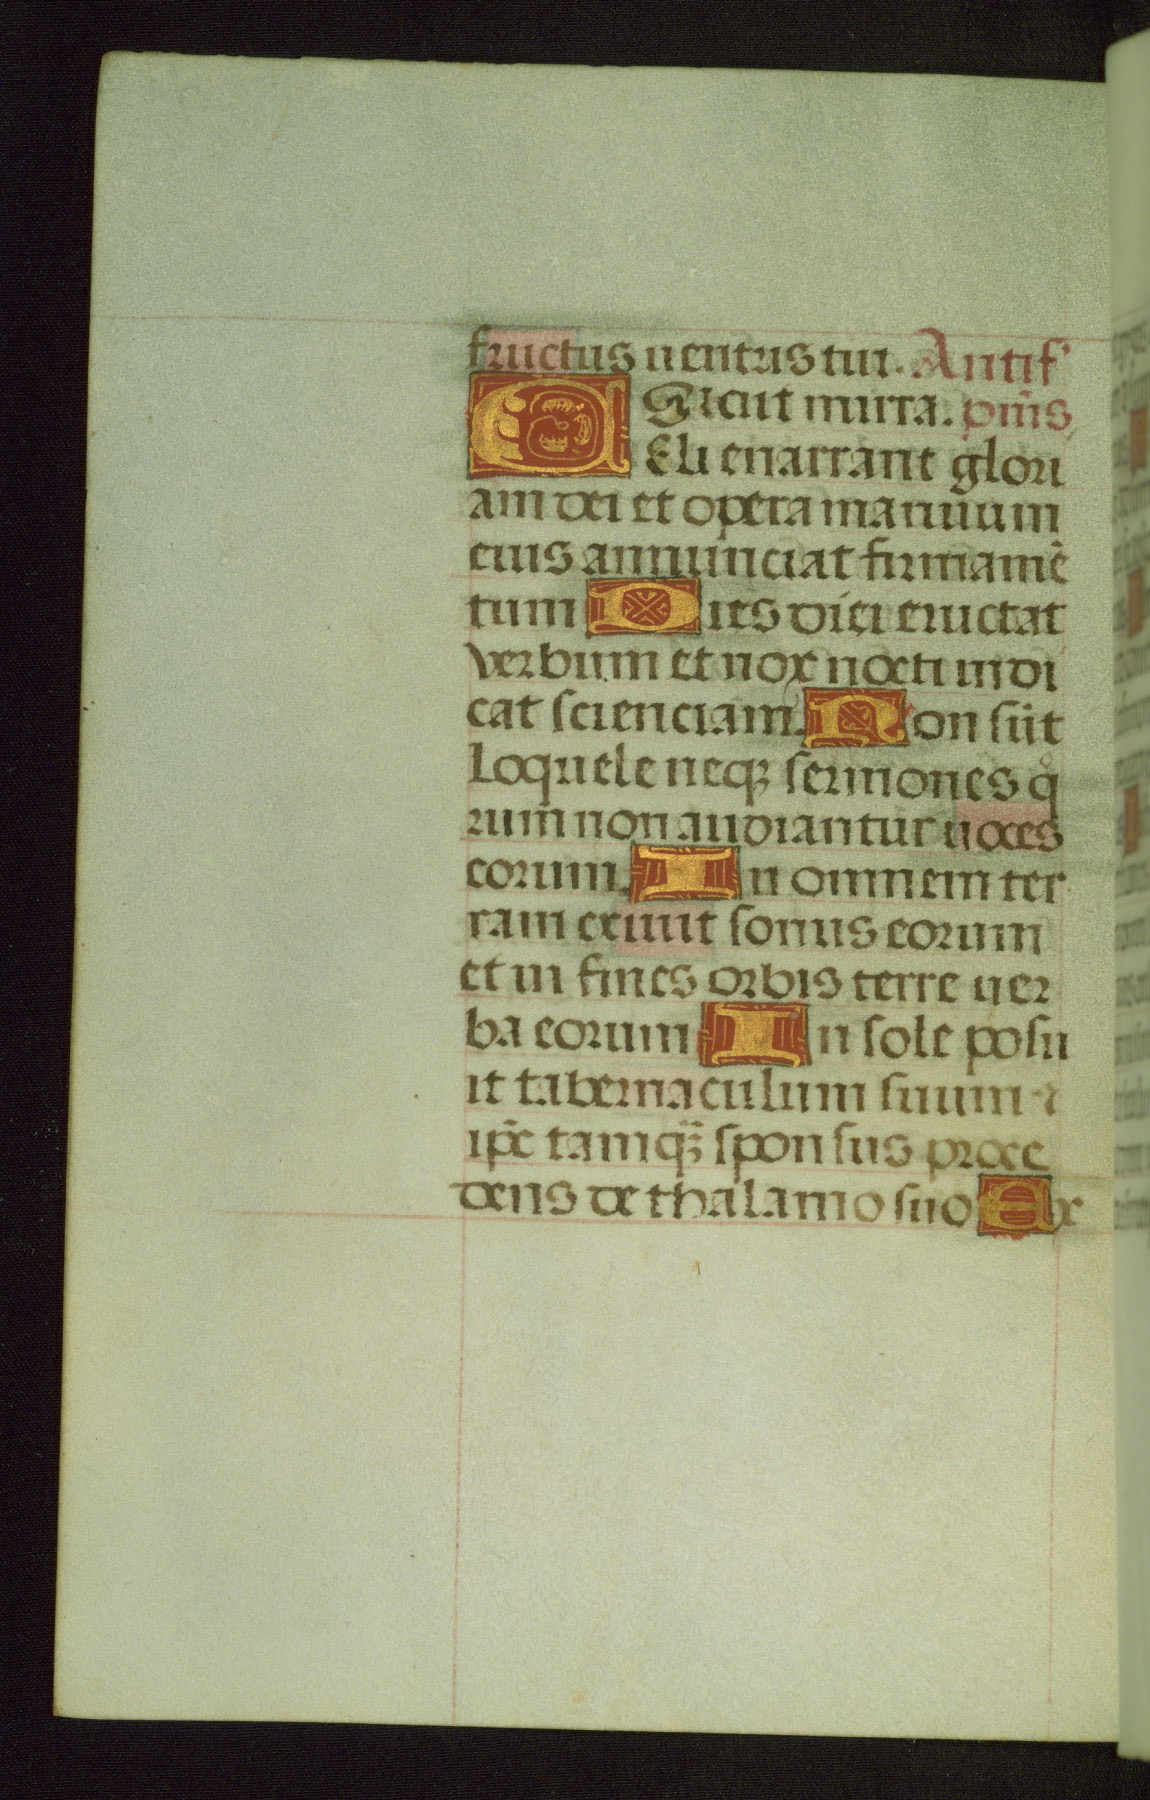 fructus uentris tui. Antif'
Sicut mirra. p̄mis
CEli enarrant glori
am dei et opera manuum
eius annunciat firmamē
tum Dies diei eructat
verbum et nox nocti indi
cat scienciam. Non sūt
Loquele neqꝫ sermones qͦ
rum non audiantur uoces
eorum. In omnem ter
ram exiuit sonus eorum
et in fines orbis terre uer
ba eorum In sole posu
it tabernaculum suum ⁊
ip̄e tamqꝫ̄ sponsus proce
dens de thalamo suo Ex